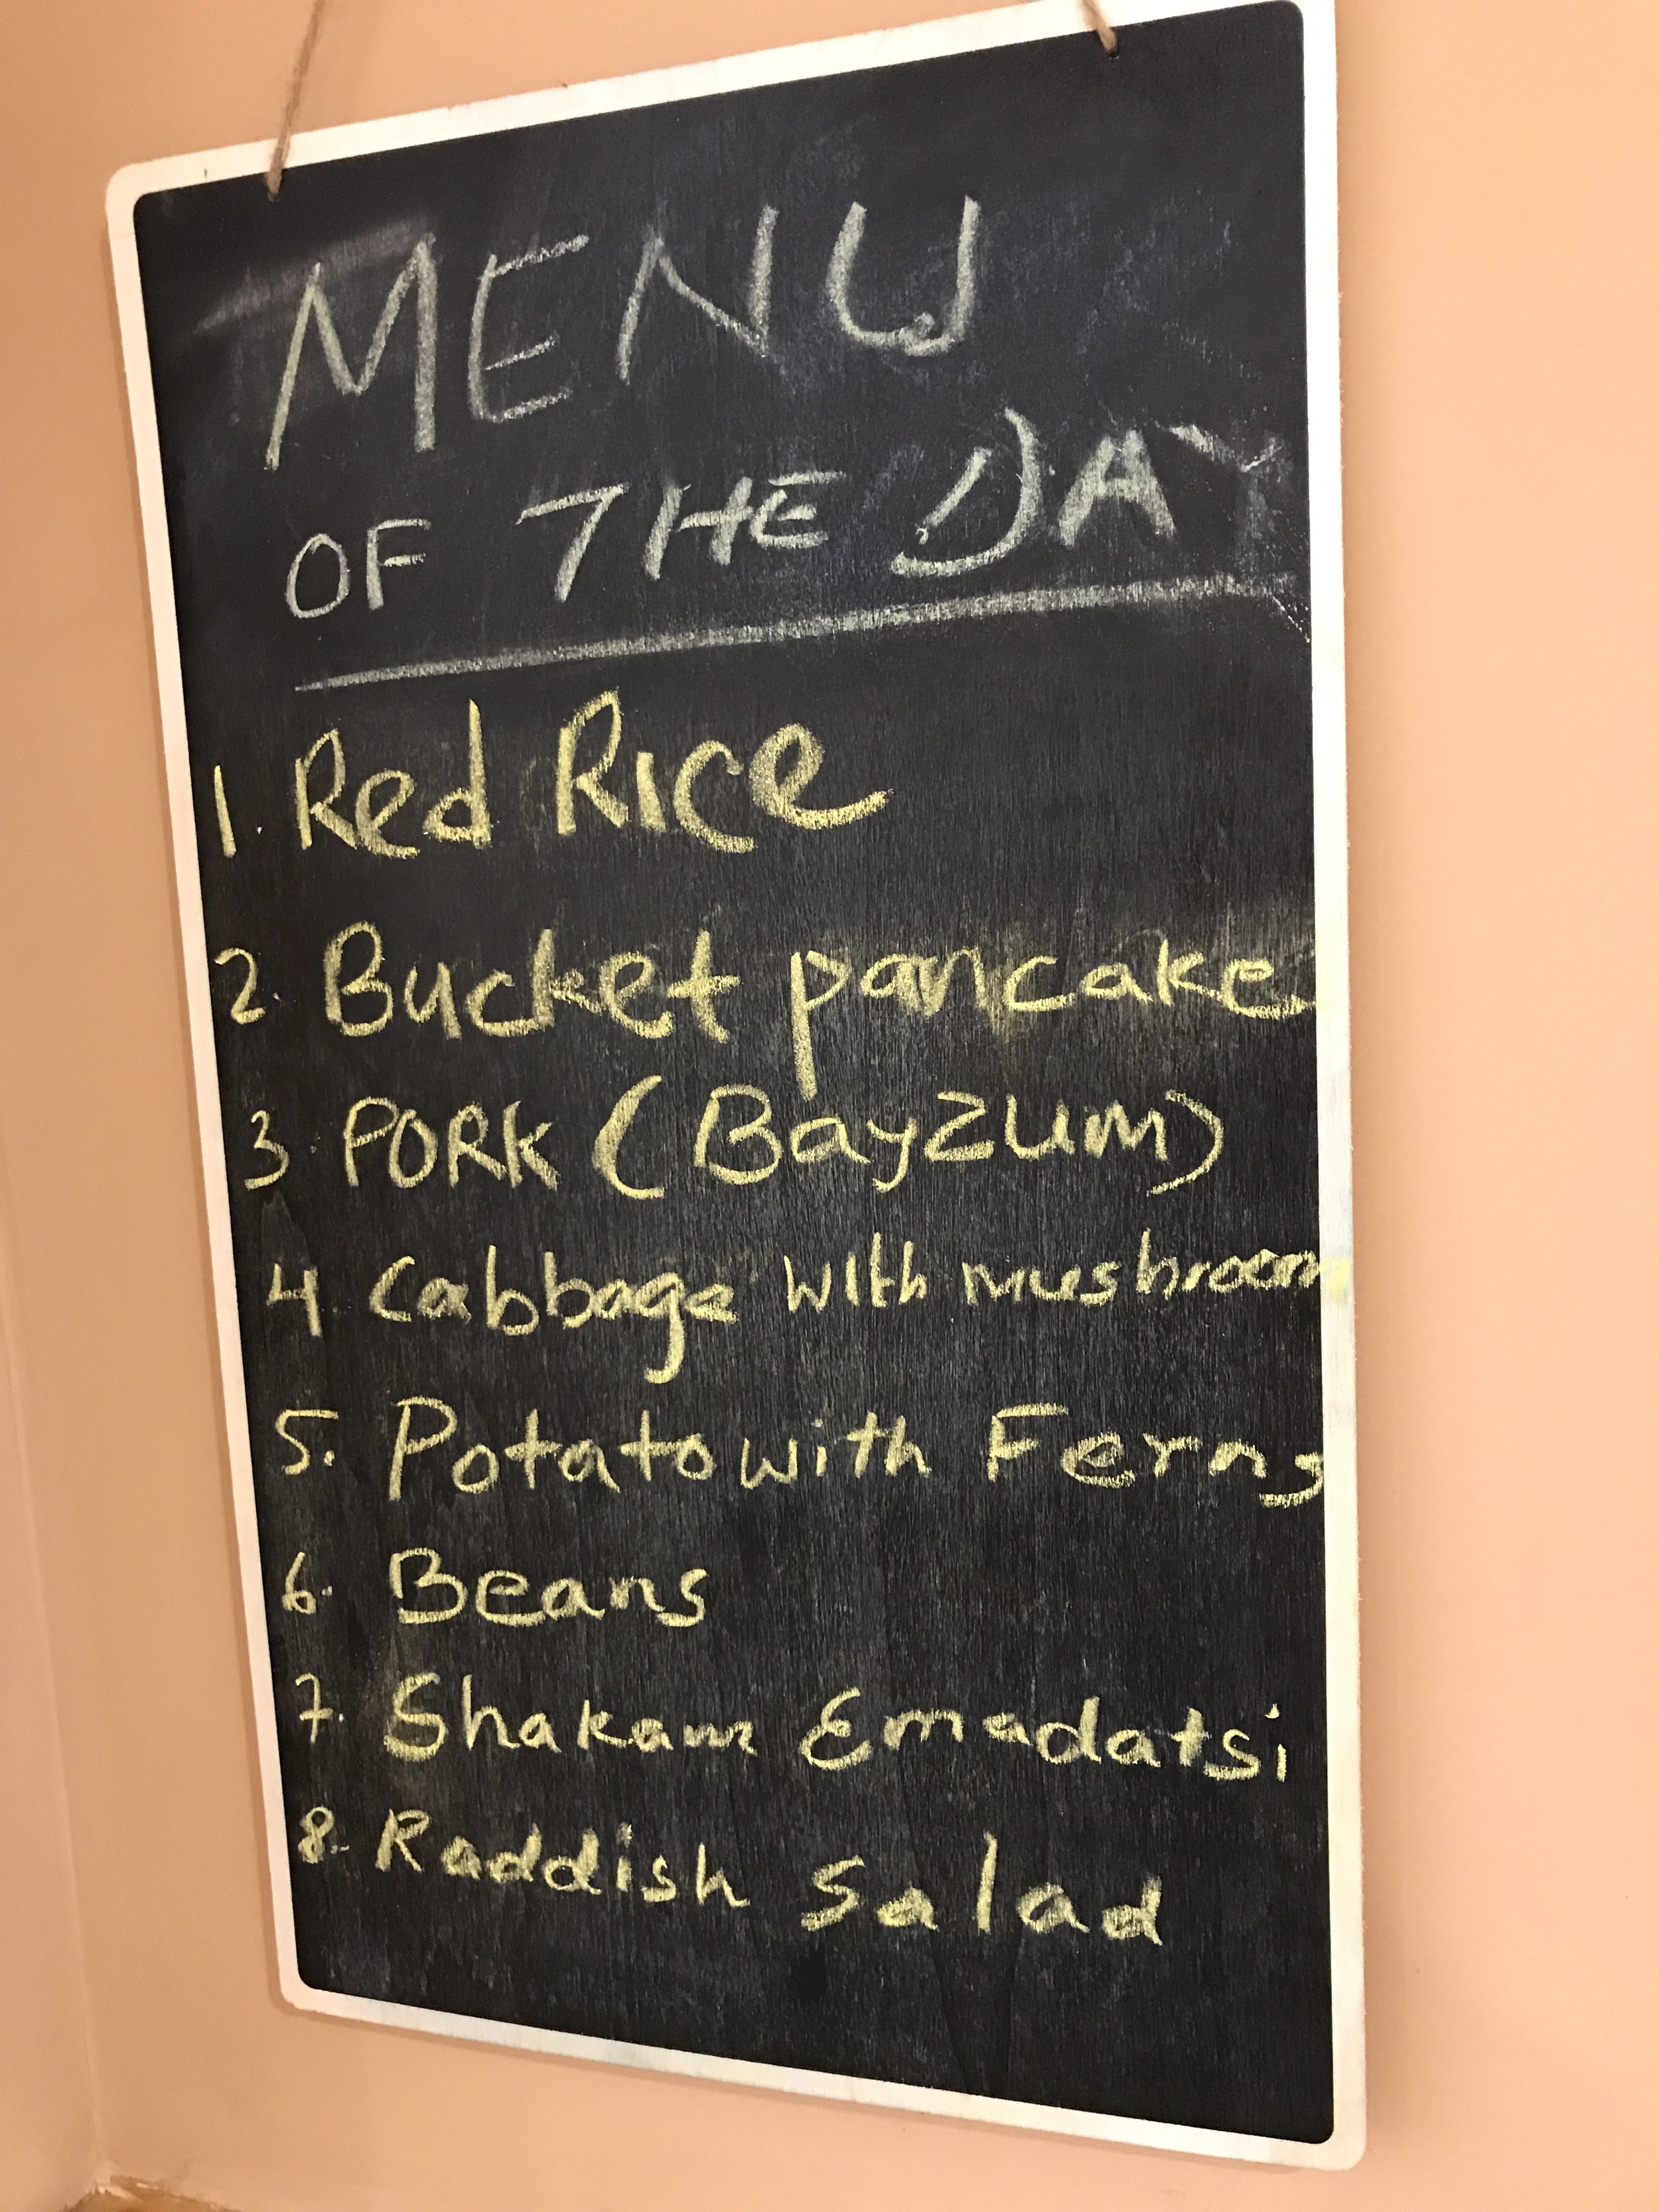 MENU
OF THE DAY
1. Red Rice
2. Bucket pancake
3 PORK (Bayzum)
4 Cabbage with mushroom
5. Potato with Ferns
6. Beans
7. Shakam Emadatsi
8. Raddish Salad